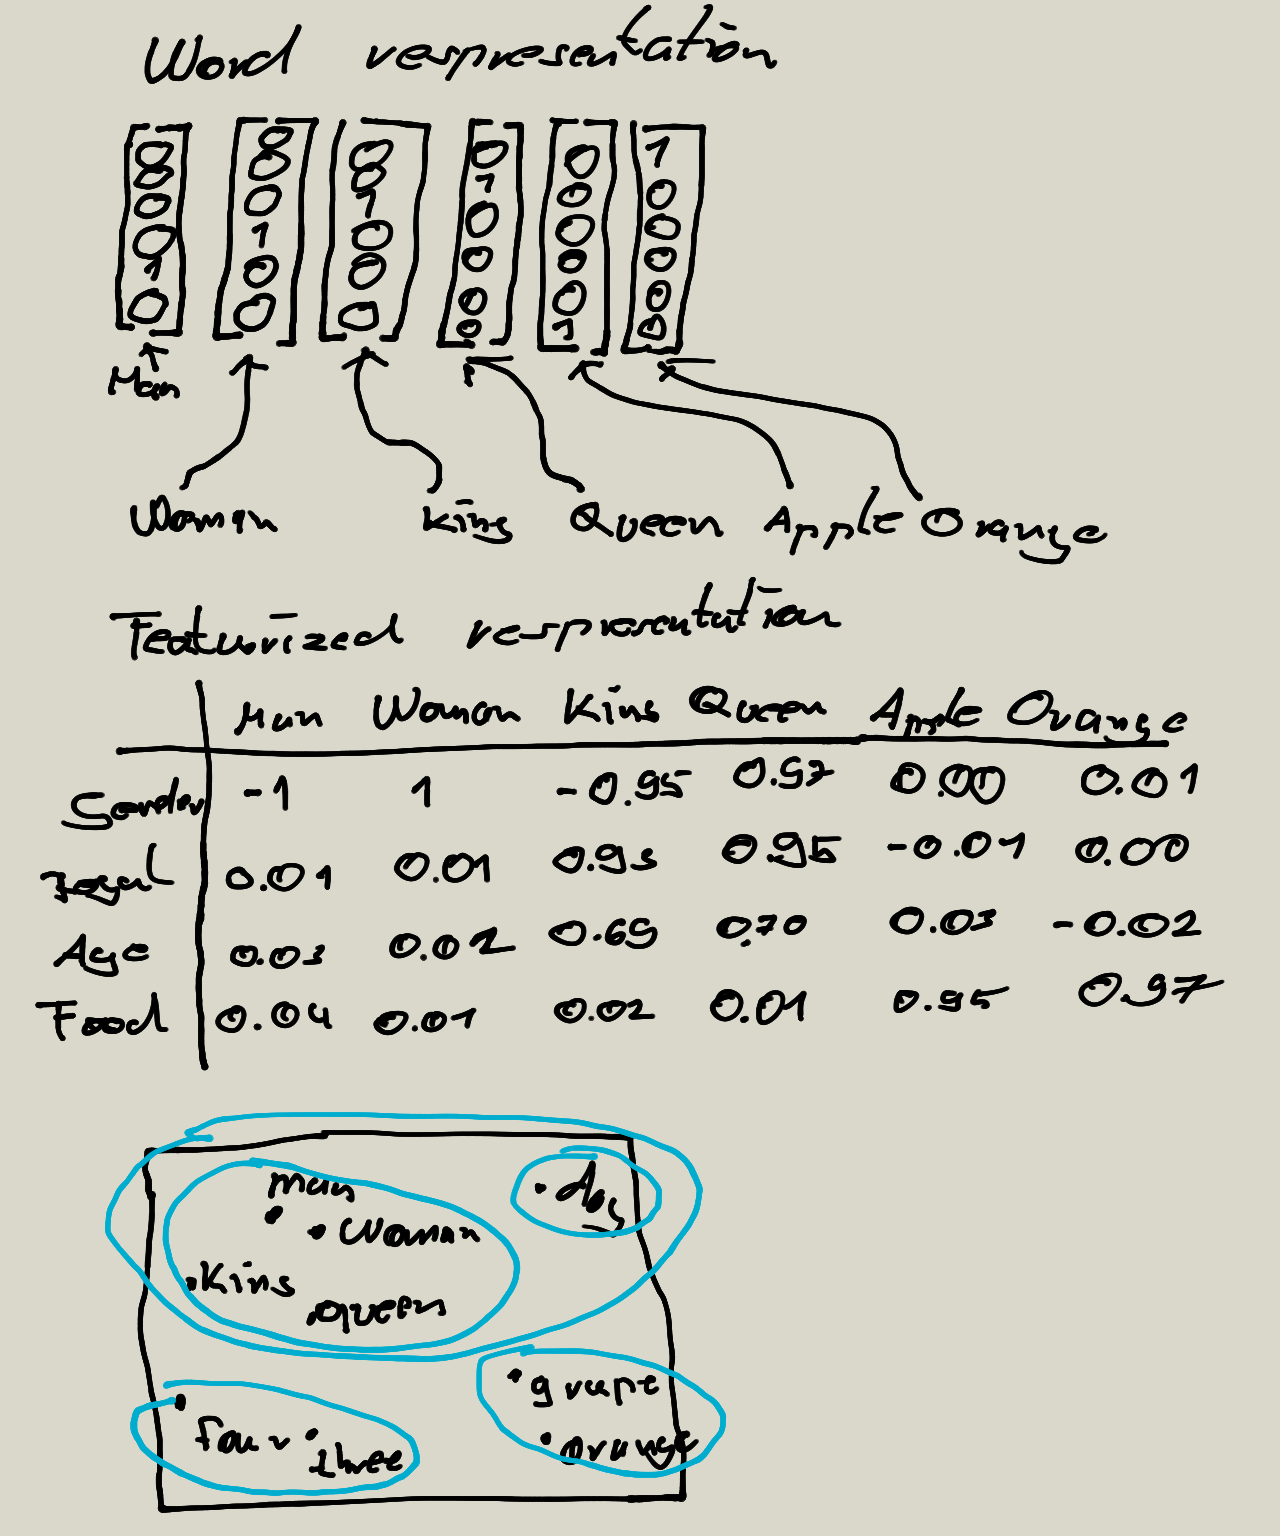 Word respresentation
0 0 0 0 0 1
0 0 0 1 0 0
0 0 1 0 0 0
0 1 0 0 0 0
1 0 0 0 0 0
0 0 0 0 1 0
Man
Woman King Queen Apple Orange
Featurized respresentation
Man Woman King Queen Apple Orange
Gender -1 1 -0.95 0.97 0.00 0.01
Royal 0.01 0.01 0.93 0.95 -0.01 0.00
Age 0.03 0.02 0.69 0.70 0.03 -0.02
Food 0.04 0.01 0.02 0.01 0.95 0.97
man
Woman
King
queen
grape
four
three
orange